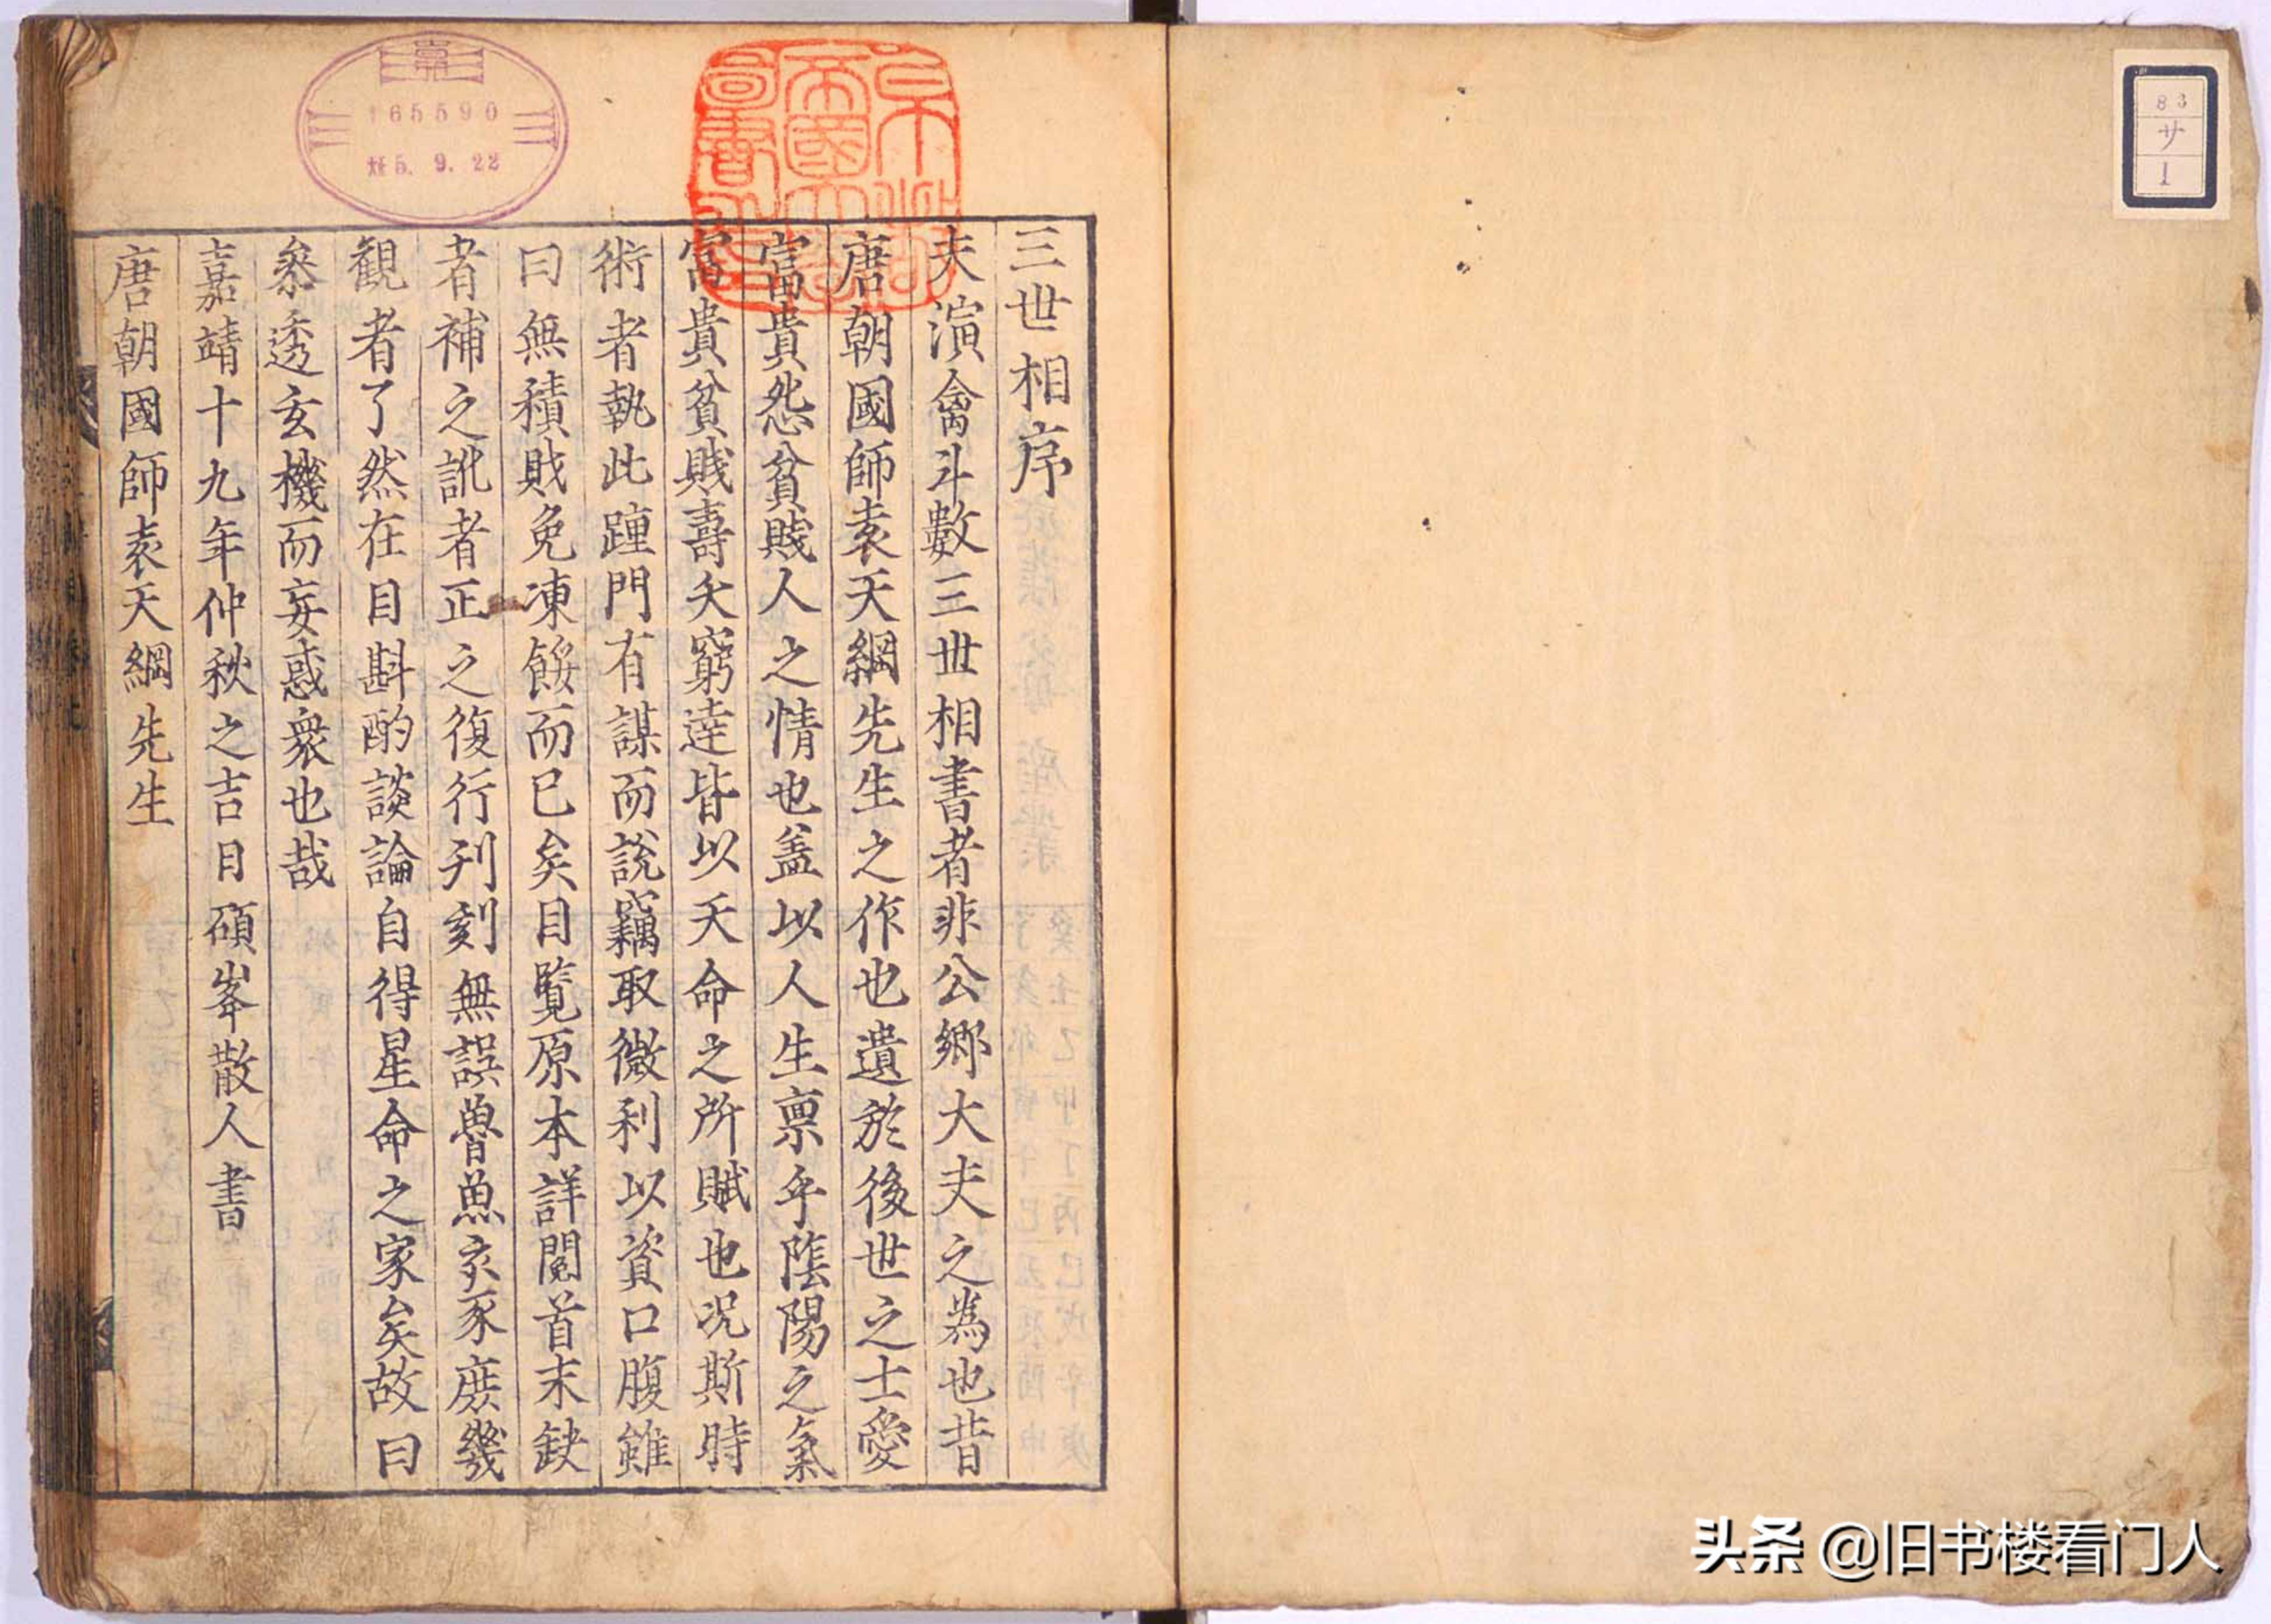 三世相序
夫演禽斗數三世相書者非公鄉大夫之為也昔
唐朝國師袁天綱先生之作也遺於後世之士愛
富貴怨貧賤人之情也盖以人生禀乎隂陽之氣
富貴貧賤壽夭窮逹皆以天命之所賦也况斯時
術者執此踵門有謀而說竊取微利以資口腹雖
曰無積財免凍餒而已矣目覽原本詳閱首末缺
者補之訛者正之復行刋刻無誤魯魚亥豕庶幾
観者了然在目斟酌談論自得星命之家矣故曰
叅透玄機而妄惑衆也哉
嘉靖十九年仲秋之吉日碩峯散人書
唐朝國師袁天綱先生
帝國
圖書
165590
5.9.22
83
サ
1
头条 @旧书楼看门人